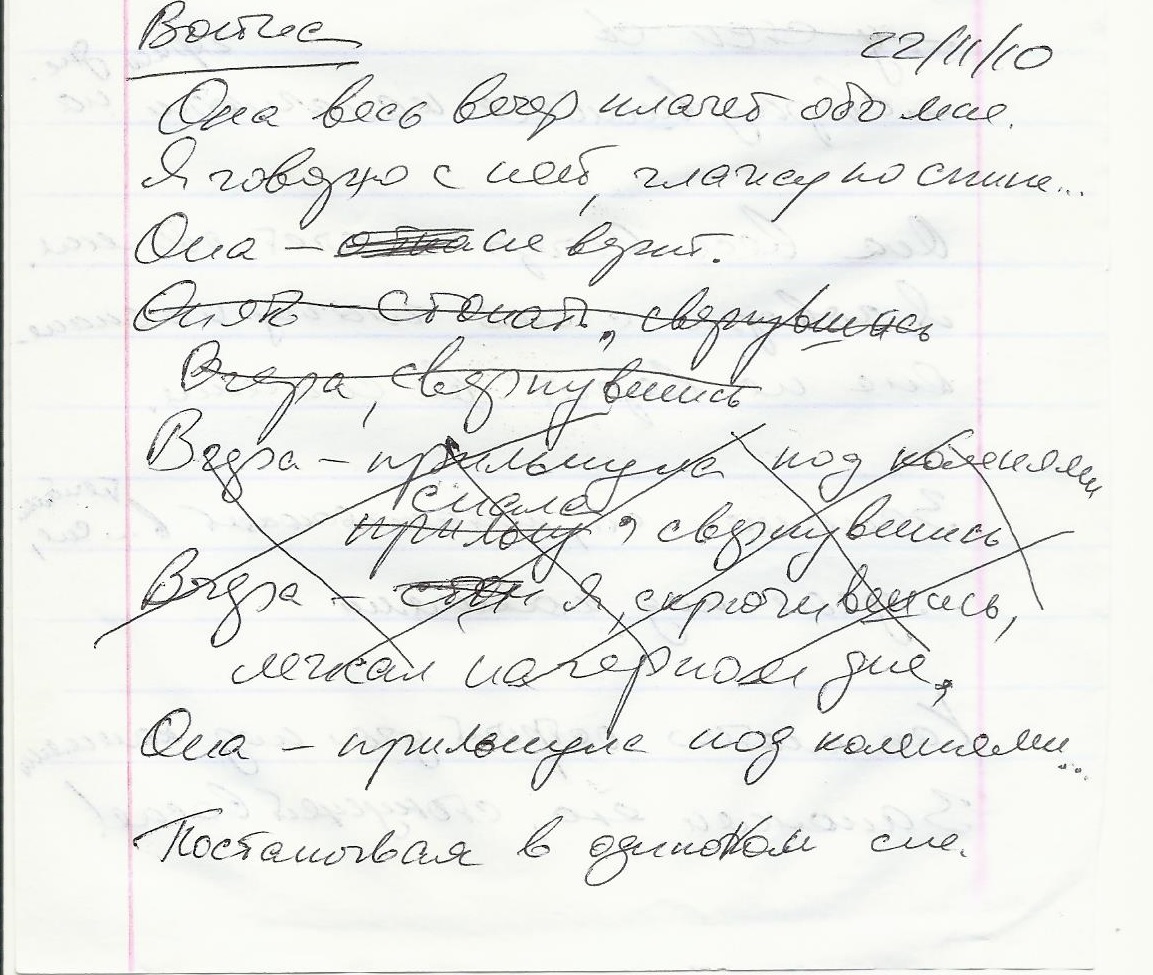 22/11/10
Она весь вечер плачет обо мне.
Я говорю с ней, глажу по спине...
Она – не верит.
Опять – стонать, свернувшись
Вчера, свернувшись
Вчера – прильнула под коленями
спала
прильну, свернувшись
Вчера – я, скрючившись,
лежал на черном дне,
Она – прильнула под коленями...
Постанывая в одиноком сне.